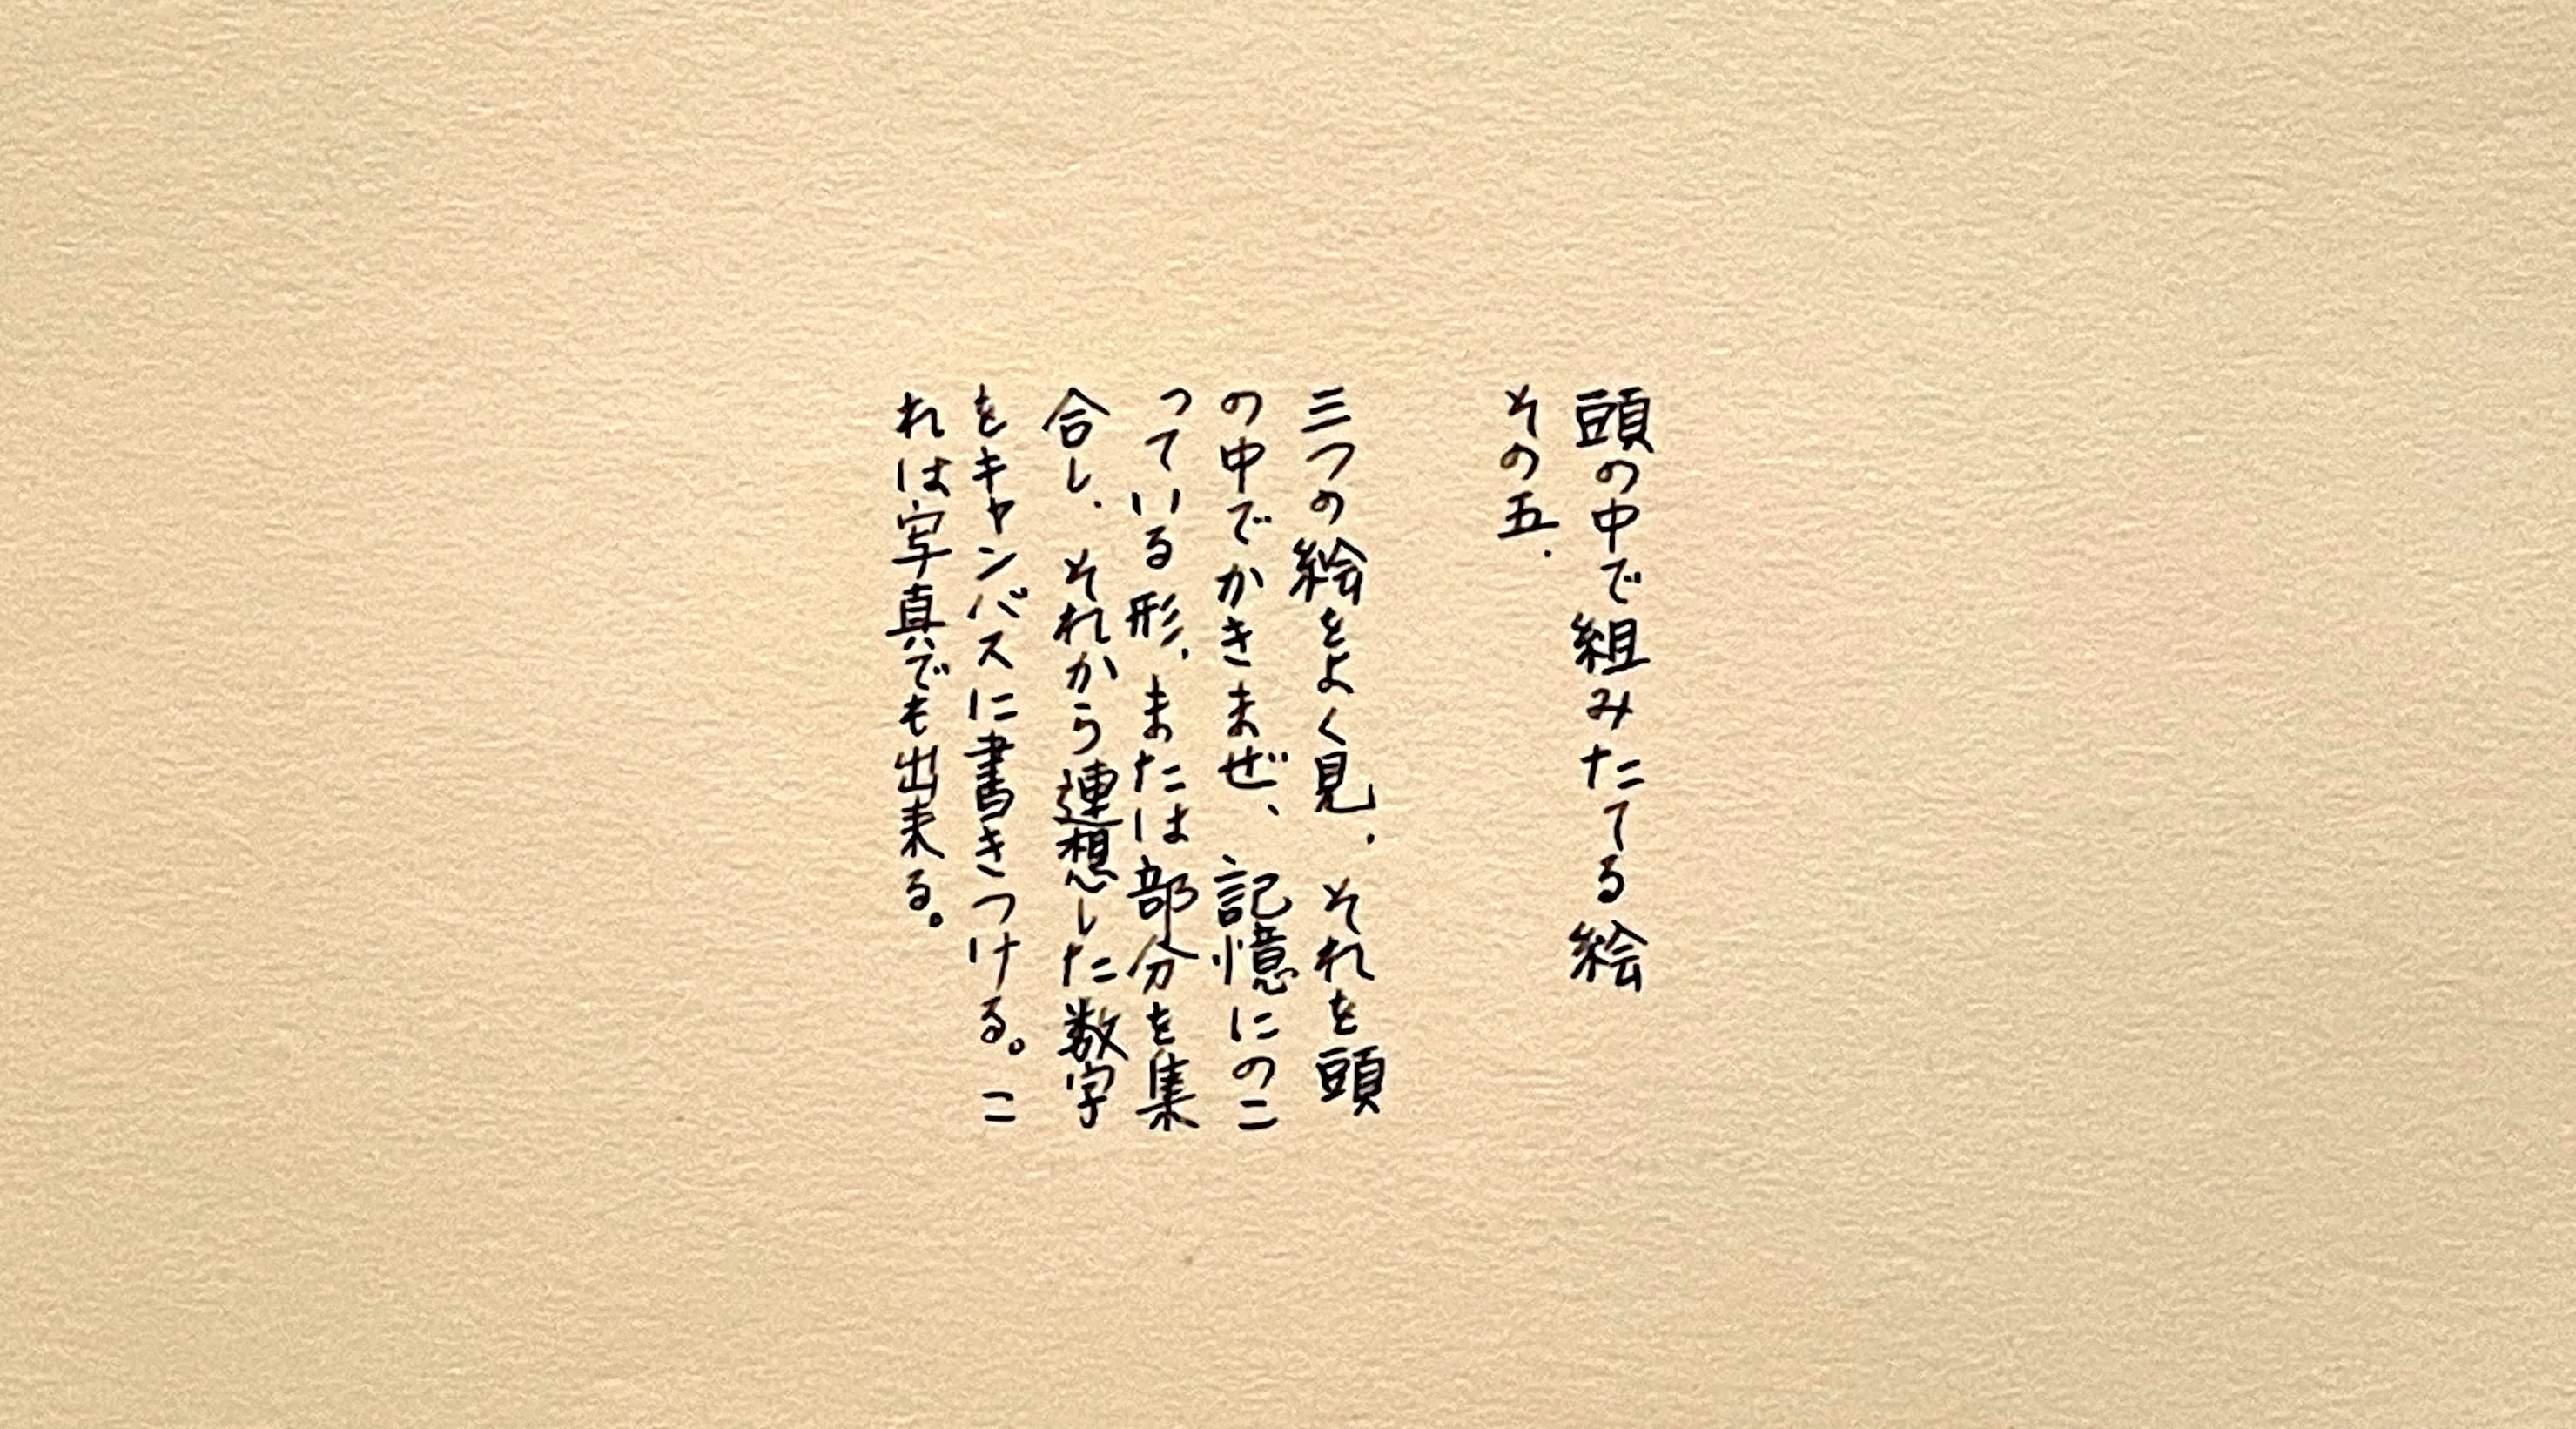 頭の中で組みたてる絵
その五.
三つの絵をよく見.それを頭
の中でかきまぜ、記憶にのこ
っている形.または部分を集
合し.それから連想した数字
をキャンバスに書きつける。こ
れは写真でも出来る。